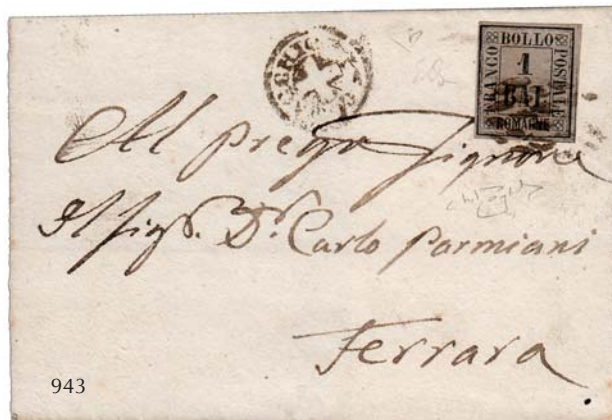 FRANCO BOLLO POSTALE
1
BAJ
ROMAGNE
Al pregr Signore
Il Sigr. Dr. Carlo Parmiani
Ferrara
943